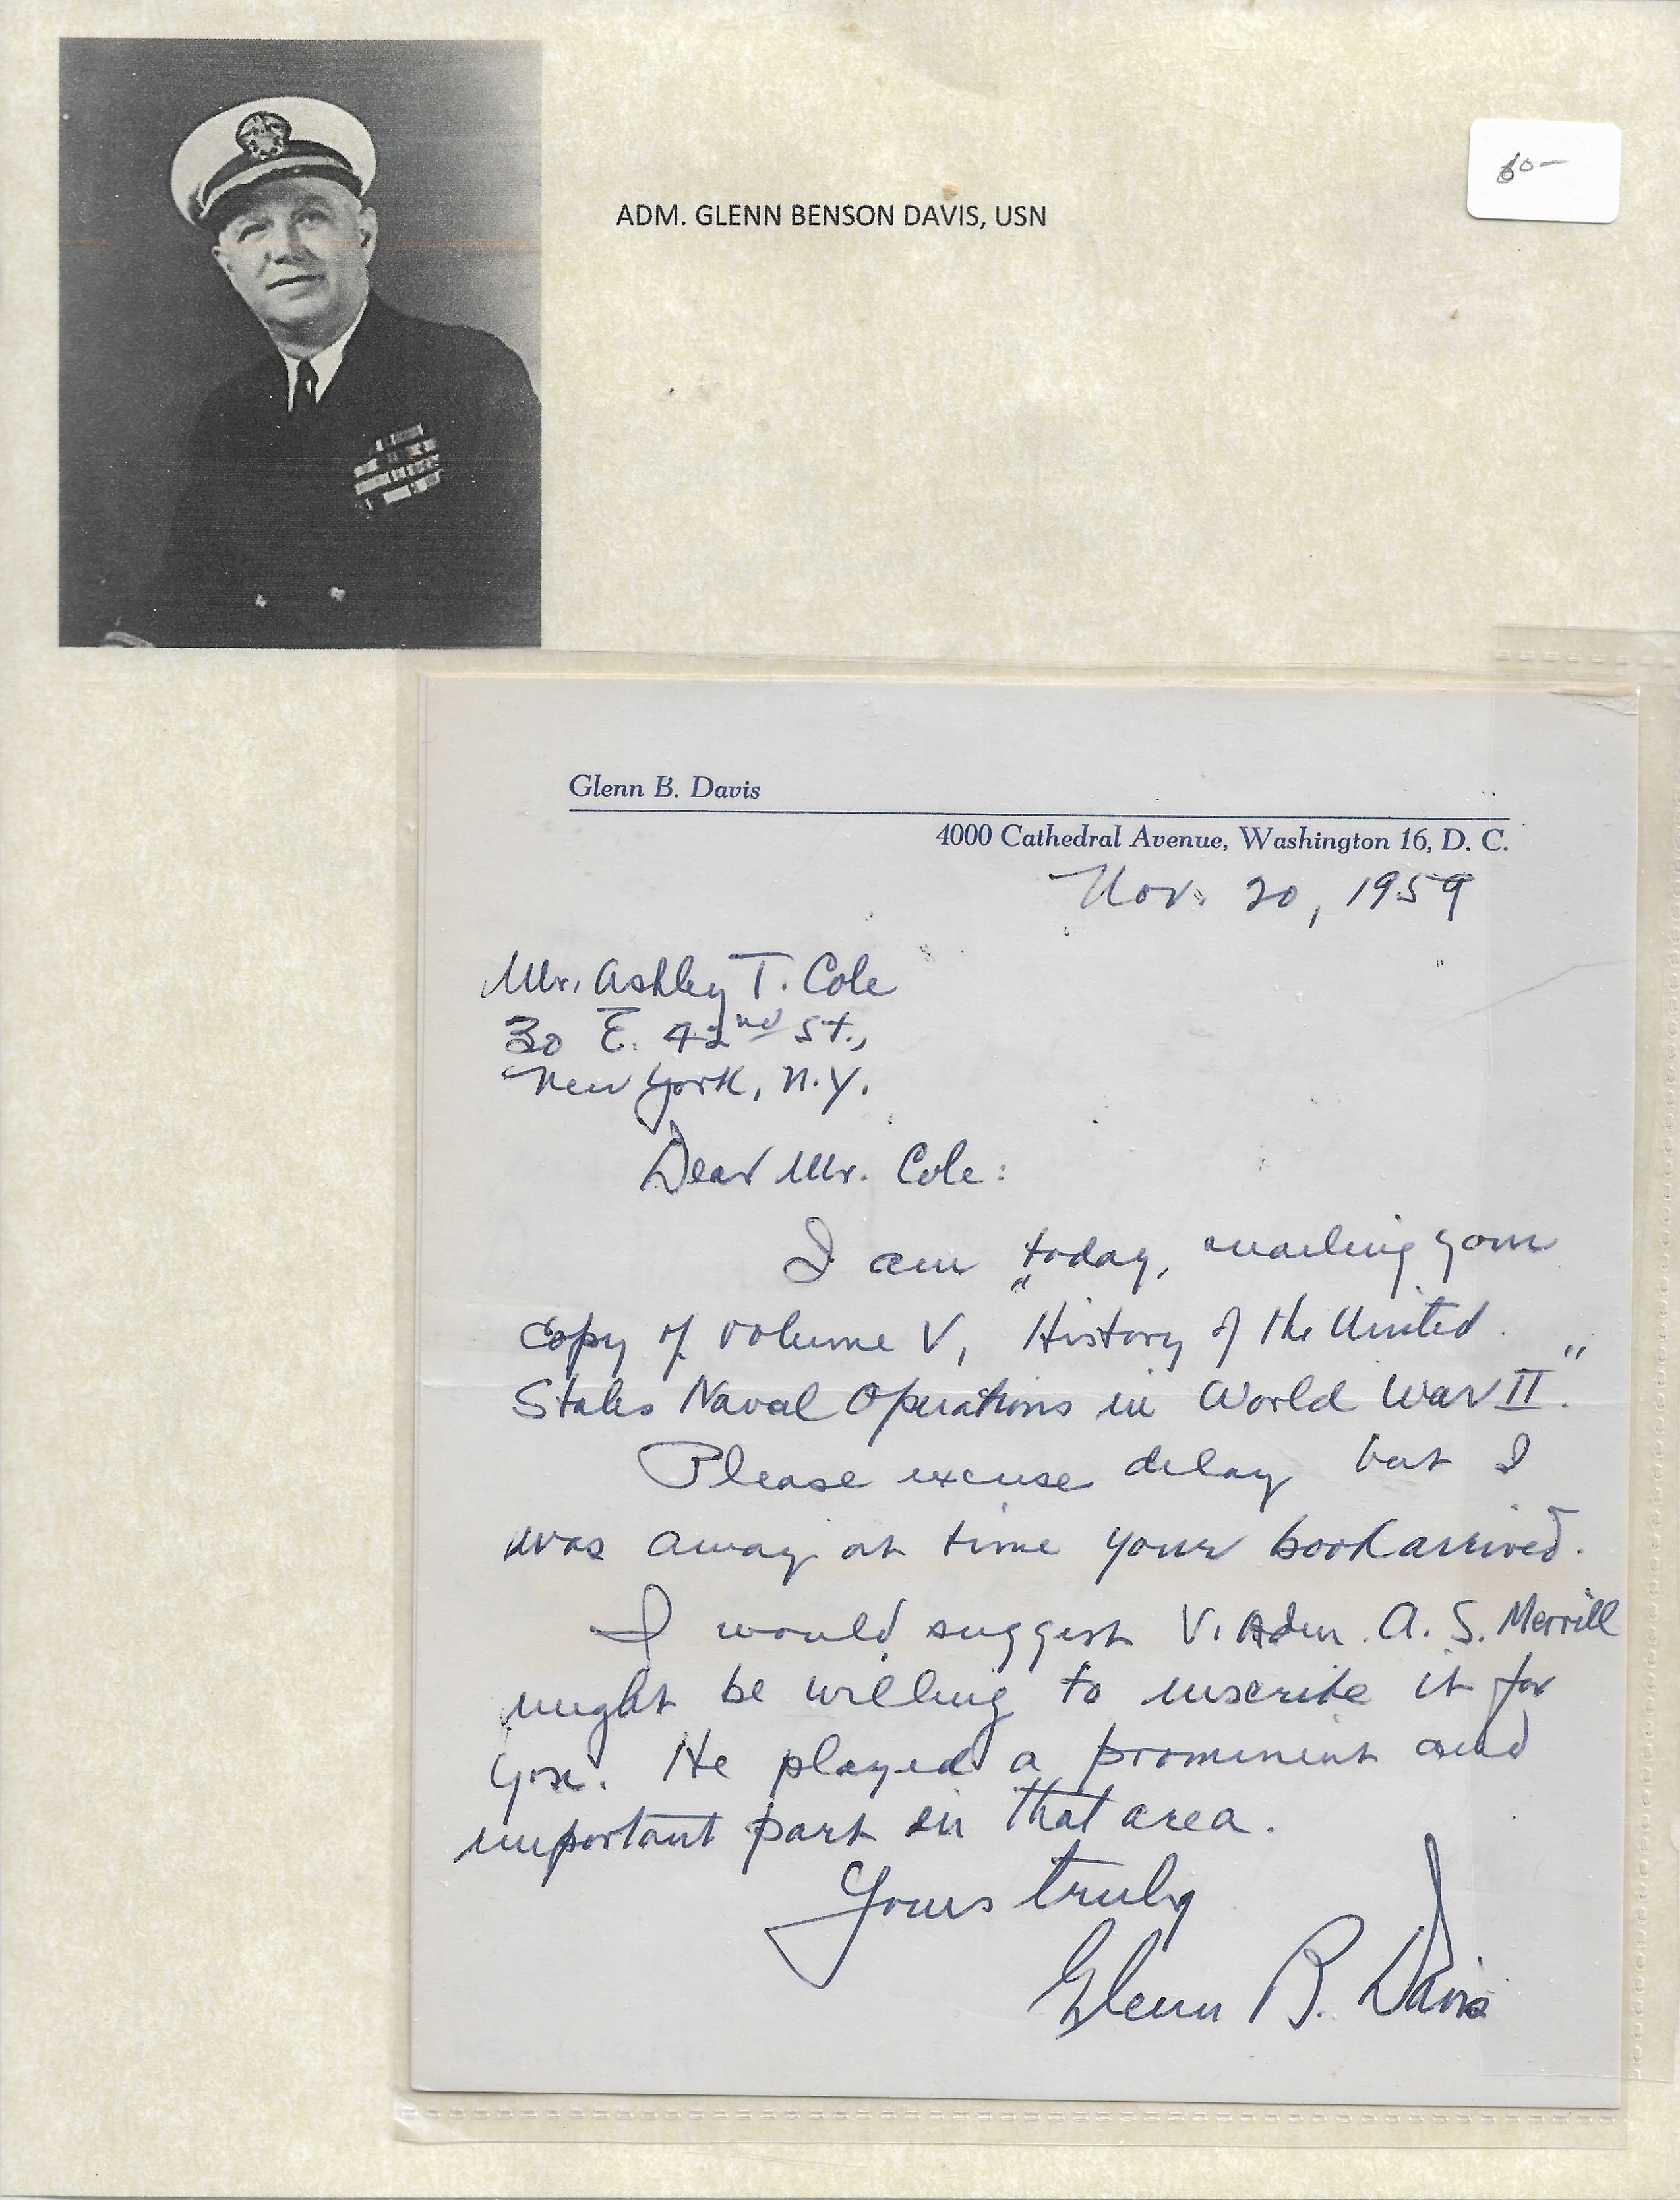 ADM. GLENN BENSON DAVIS, USN
60-
Glenn B. Davis
4000 Cathedral Avenue, Washington 16, D. C.
Nov. 20, 1959
Mr. Ashley T. Cole
30 E. 42nd St.,
New York, N.Y.
Dear Mr. Cole:
I am today, mailing your
Copy of volume V, "History of the United
States Naval Operations in World War II".
Please excuse delay but I
was away at time your book arrived.
I would suggest V. Adm. A. S. Merrill
might be willing to inscribe it for
you. He played a prominent and
important part in that area.
Yours truly
Glenn B. Davis